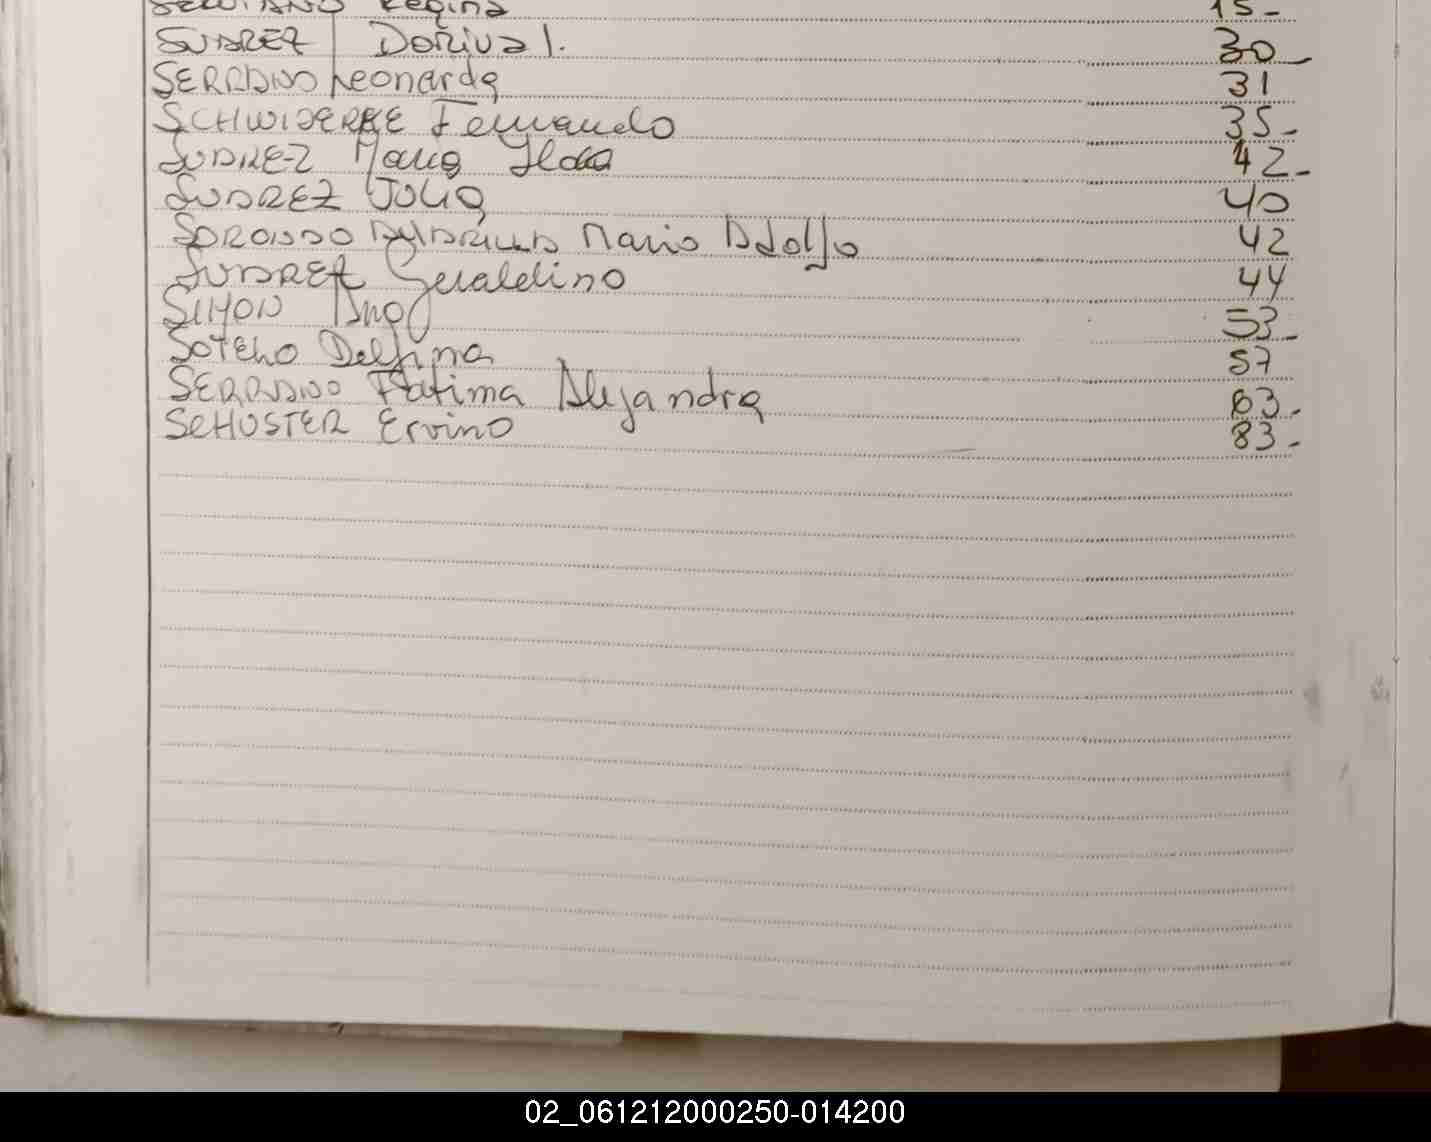 Regina 15-
SUAREZ Dorival. 30
SERRANO Leonarda 31
Fernando 35-
SUAREZ Maria Ilda 42-
SUAREZ Julia 40
Mario Adolfo 42
SUAREZ Geraldino 44
SIMON Ang 53-
SOTELO Delfina 57
SERRANO Fatima Alejandra 63-
SCHUSTER Ervino 83-
02_061212000250-014200